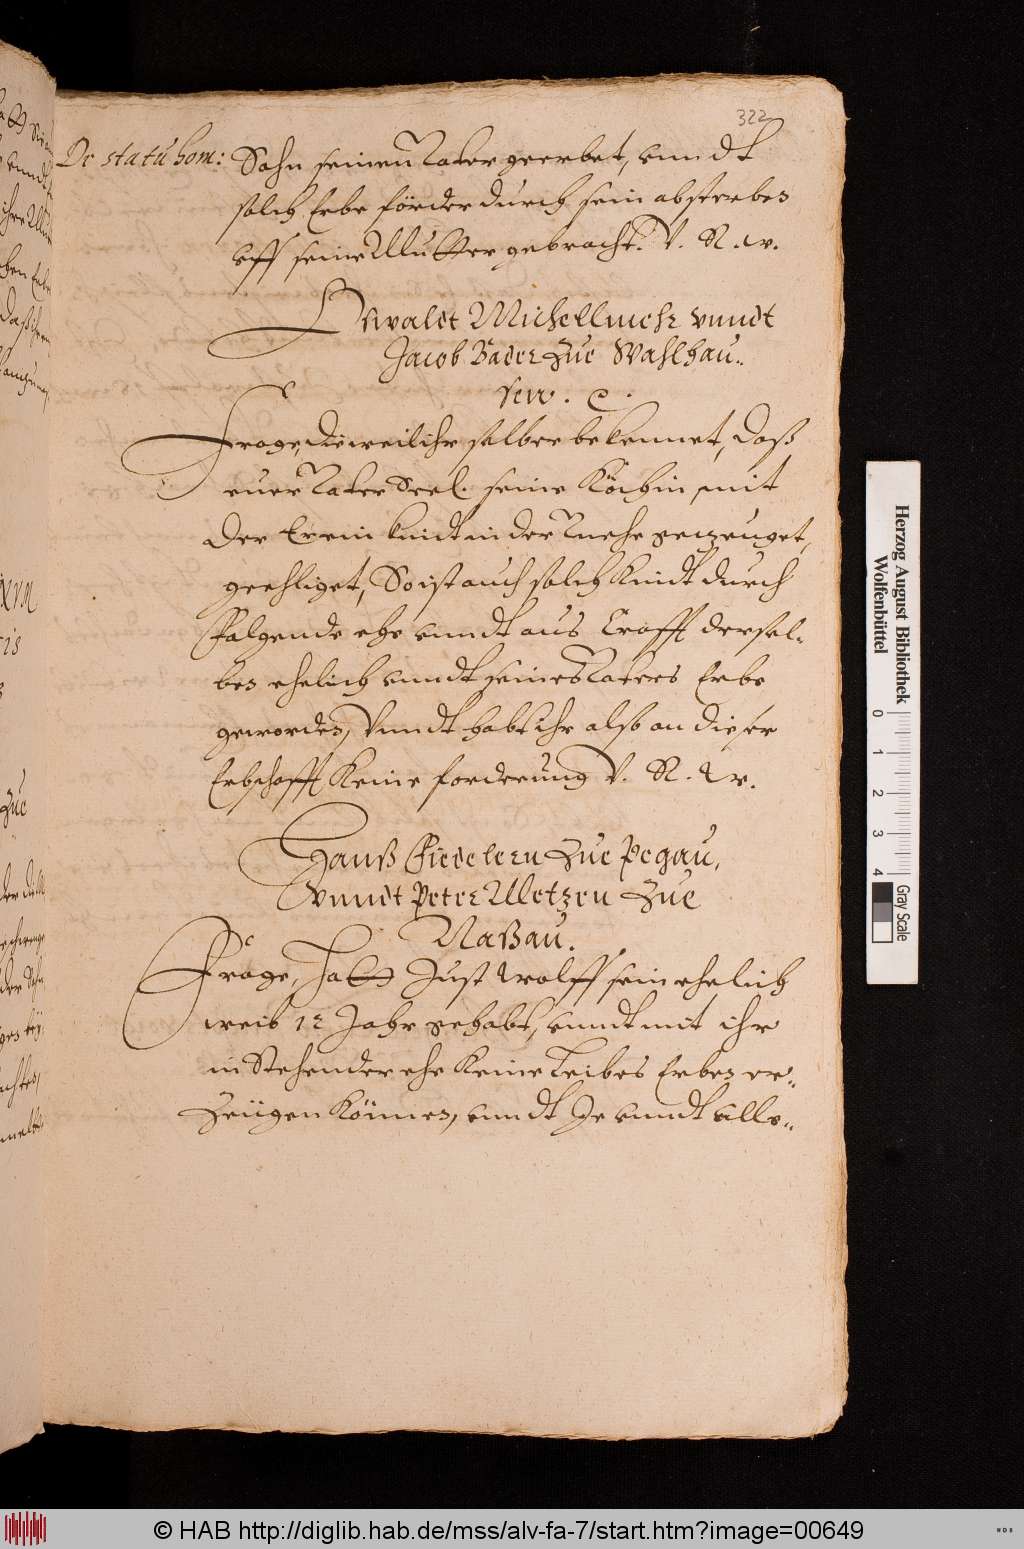 322
De statu hom:
Sohn seinen Vater geerbet, vnndt
solch Erbe förder durch sein absterben
vff seine Mutter gebracht. V. R. w.
Oswaldt Michell vnndt
Jacob Bader Zue Wahlhau-
sen. c.
Frage, dieweil ihr selber bekennet, daß
euer Vater Seel. seine Köchin, mit
der Er ein kindt in der Vnehe gezeuget,
geehliget, So ist auch solch Kindt durch
folgende ehe vnndt aus Crafft dersel-
ben ehelich vnndt seines Vaters Erbe
geworden, Vnndt habt ihr also an dieser
Erbschafft Keine forderung V. R. w.
Hanß Fiedelern Zue Pegau,
Vnndt Peter Metzen Zue
Naßau.
Frage, Hatt Just Wolff sein ehelich
weib 12 Jahr gehabt, vnndt mit ihr
in Stehender ehe Keine Leibes Erben er-
Zeügen Können, vnndt Je vnndt alle-
Herzog August Bibliothek
Wolfenbüttel
0 1 2 3 4
Gray Scale
© HAB http://diglib.hab.de/mss/alv-fa-7/start.htm?image=00649